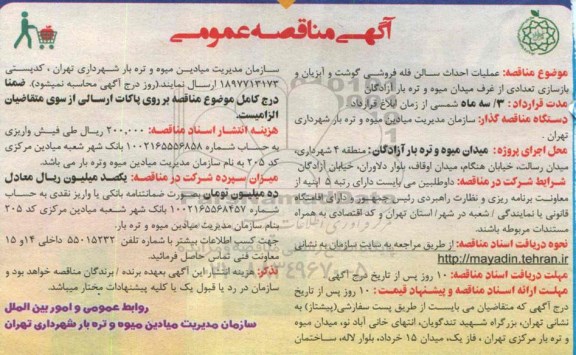 آگهی مناقصه عمومی
موضوع مناقصه: عملیات احداث سالن فله فروشی گوشت و آبزیان و
بازسازی تعدادی از غرف میدان میوه و تره بار آزادگان
مدت قرارداد : ۳/ سه ماه شمسی از زمان ابلاغ قرارداد
دستگاه مناقصه گذار: سازمان مدیریت میادین میوه و تره بار شهرداری
تهران .
محل اجرای پروژه: میدان میوه و تره بار آزادگان: منطقه ۴ شهرداری،
میدان رسالت، خیابان هنگام، میدان اوقاف، بلوار دلاوران، خیابان آزادگان
شرایط شرکت در مناقصه: داوطلبین می بایست دارای رتبه ۵ ابنیه از
معاونت برنامه ریزی و نظارت راهبردی رئیس جمهور
قانونی یا نمایندگی / شعبه در شهر/ استان تهران و کد اقتصادی به همراه
مستندات مربوطه باشند.
نحوه دریافت اسناد مناقصه: از طریق مراجعه به سایت سازمان به نشانی
http://mayadin.tehran.ir
مهلت دریافت اسناد مناقصه: ۱۰ روز پس از تاریخ درج آگهی
مهلت ارائه اسناد مناقصه و پیشنهاد قیمت : ۱۰ روز پس از تاریخ
درج آگهی که متقاضیان می بایست از طریق پست سفارشی(پیشتاز) به
نشانی تهران، بزرگراه شهید تندگویان، انتهای خانی آباد نو، میدان میوه
و تره بار مرکزی تهران ، فاز یک، میدان ۱۵ خرداد، بلوار لاله، ساختمان
سازمان مدیریت میادین میوه و تره بار شهرداری تهران ، کدپستی
۱۸۹۷۷۱۳۱۷۳ ارسال نمایند.(روز درج آگهی محاسبه نمیشود). ضمنا
درج کامل موضوع مناقصه بر روی پاکات ارسالی از سوی متقاضیان
الزامیست.
هزینه انتشار اسناد مناقصه: ۲۰۰,۰۰۰ ریال طی فیش واریزی
به حساب شماره ۱۰۰۲۱۶۵۵۶۸۵۸ بانک شهر شعبه میادین مرکزی
کد ۲۰۵ به نام سازمان مدیریت میادین میوه وتره بار می باشد.
میزان سپرده شرکت در مناقصه: یکصد میلیون ریال معادل
ده میلیون تومان بصورت ضمانتنامه بانکی یا واریز نقدی به حساب
شماره ۱۰۰۲۱۶۵۵۶۸۴۵۷ بانک شهر شعبه میادین مرکزی کد ۲۰۵
بنام سازمان مدیریت میادین میوه و تره بار.
جهت کسب اطلاعات بیشتر با شماره تلفن ۵۵۰۱۵۲۳۲ داخلی ۱۴ و ۱۵
معاونت فنی تماس حاصل فرمائید.
تذکر: هزینه انتشار این آگهی بعهده برنده / برندگان مناقصه خواهد بود و
سازمان در رد یا قبول یک یا کلیه پیشنهادات مختار میباشد.
روابط عمومی و امور بین الملل
سازمان مدیریت میادین میوه و تره بار شهرداری تهران